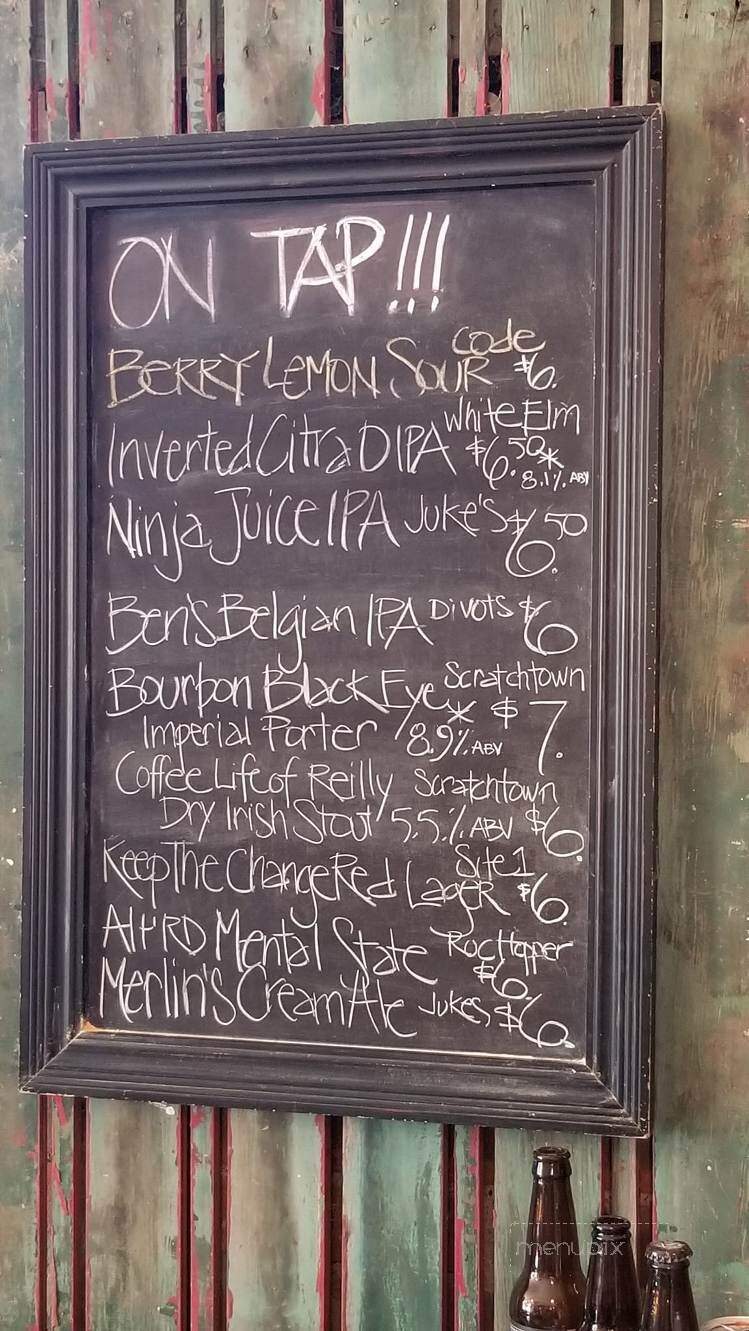 ON TAP!!!
Berry Lemon Sour Code $6.
Inverted Citra DIPA White Elm $6.50* 8.1% ABV
Ninja Juice IPA Juke's $6.50
Ben's Belgian IPA Divots $6
Bourbon Black Eye Scratchtown
Imperial Porter 8.9%* ABV $7.
Coffee Life of Reilly Scratchtown
Dry Irish Stout 5.5% ABV $6.
Keep The Change Red Lager Site 1 $6.
Mental State $6.
Merlin's Cream Ale Jukes, $6.
menupix